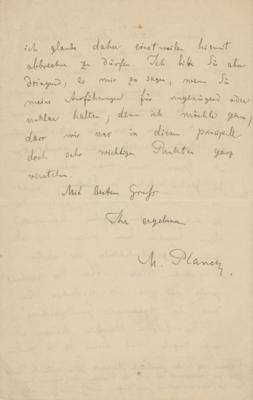 ich glaube daher einstweilen hiermit
abbrechen zu dürfen. Ich bitte Sie aber
dringend, es mir zu sagen, wenn Sie
meine Ausführungen für ungenügend oder
unklar halten, denn ich möchte gern,
dass wir uns in diesen prinzipiell
doch sehr wichtigen Punkten ganz
verstehen.
Mit bestem Gruss
Ihr ergebener
M. Planck.